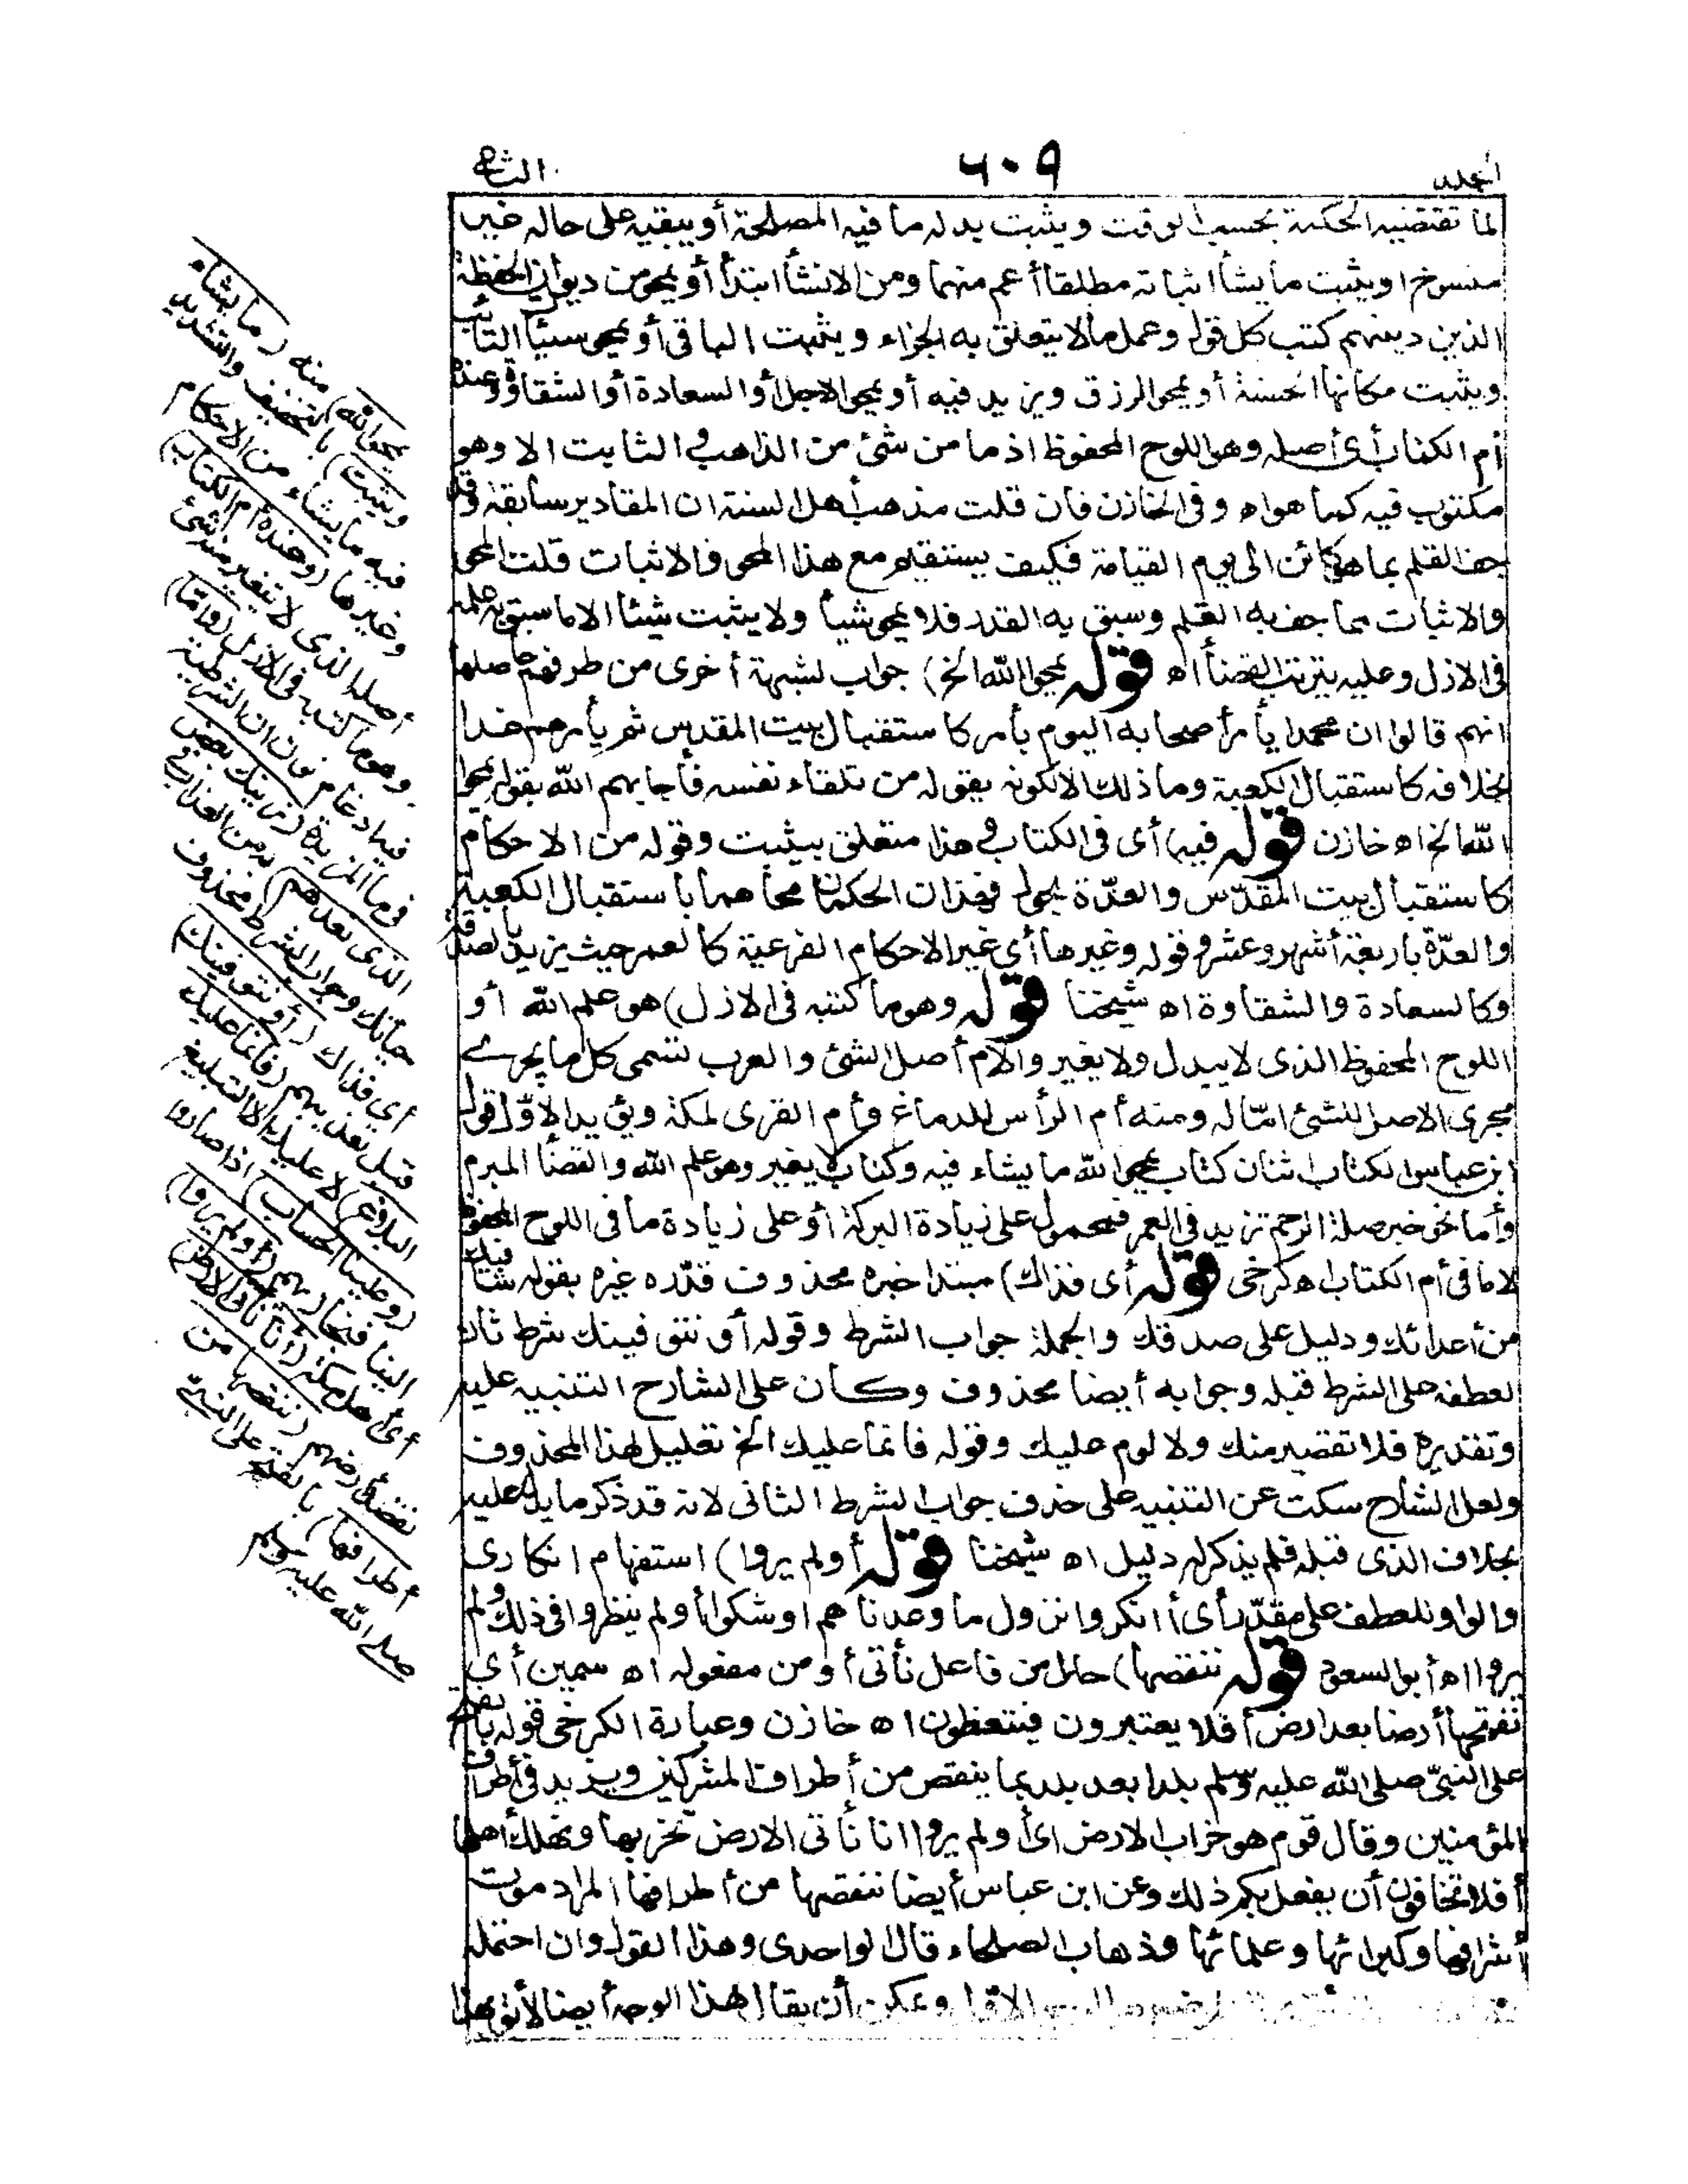 المجلد
٦٠٩
الثانى
لما تقتضيه الحكمة بحسب الوقت ويثبت بدله ما فيه المصلحة أو يبقيه على حاله غير
منسوخ او يثبت ما يشأ اثباته مطلقا أعم منهما ومن الانشأ ابتدأ أو يمحو من ديوان الحفظة
الذين ديدنهم كتب كل قول وعمل مالا يتعلق به الجزاء ويثبت الباقى أو يمحو سيئات التائب
ويثبت مكانها الحسنة أو يمحو الرزق ويزيد فيه أو يمحو الاجل أو السعادة أو الشقاوة وعنده
أم الكتاب أى أصله وهو اللوح المحفوظ اذ ما من شئ من الذاهب والثابت الا وهو
مكتوب فيه كما هو اه وفى الخازن فان قلت مذهب أهل السنة ان المقادير سابقة وقد
جف القلم بما هو كائن الى يوم القيامة فكيف يستقيم مع هذا المحو والاثبات قلت المحو
والاثبات مما جف به القلم وسبق به القدر فلا يمحو شيأ ولا يثبت شيئا الا ما سبق به علمه
فى الازل وعليه يترتب القضأ اه قوله يمحو الله الخ) جواب لشبهة أخرى من طرفهم حاصلها
انهم قالوا ان محمدا يأمر أصحابه اليوم بأمر كاستقبال بيت المقدس ثم يأمرهم غدا
بخلافه كاستقبال الكعبة وما ذلك الا لكونه يقوله من تلقاء نفسه فأجابهم الله بقوله يمحوا
الله الخ اه خازن قوله فيه) أى فى الكتاب وهذا متعلق بيثبت وقوله من الاحكام
كاستقبال بيت المقدّس والعدّة بحول فهذان الحكمان محاهما باستقبال الكعبة
والعدّة بأربعة أشهر وعشر وقوله وغيرها أى غير الاحكام الفرعية كالعمر حيث يزيد بالصدقة
وكالسعادة والشقاوة اه شيخنا قوله وهو ما كتبه فى الازل) هو علم الله أو
اللوح المحفوظ الذى لا يبدل ولا يغير والأم أصل الشئ والعرب تسمى كل ما يجرى
مجرى الاصل للشئ امّا له ومنه أم الرأس للدماغ وأم القرى لمكة ويؤيد الأوّل قول
ابن عباس الكتاب اثنان كتاب يمحو الله ما يشاء فيه وكتاب لا يغير وهو علم الله والقضأ المبرم
وأما نحو خبر صلة الرحم تزيد فى العمر فمحمول على زيادة البركة أو على زيادة ما فى اللوح المحفوظ
لا ما فى أم الكتاب اه كرخى قوله أى فذاك) مبتدا خبره محذوف قدّره غيره بقوله شافيك
من أعدائك ودليل على صدقك والجملة جواب الشرط وقوله أو نتوفينك شرط ثان
لعطفه على الشرط قبله وجوابه أيضا محذوف وكان على الشارح التنبيه عليه
وتقديره فلا تقصير منك ولا لوم عليك وقوله فانما عليك الخ تعليل لهذا المحذوف
ولعل الشارح سكت عن التنبيه على حذف جواب الشرط الثانى لانه قد ذكر ما يدل عليه
بخلاف الذى قبله فلم يذكر له دليل اه شيخنا قوله أولم يروا) استفهام انكارى
والواو للعطف على مقدّر أى أأنكروا نزول ما وعدناهم او شكوا أولم ينظروا فى ذلك ولم
يروا اه أبو السعود قوله ننقصها) حال من فاعل نأتى أو من مفعوله اه سمين أى
نفتحها أرضا بعد ارض أفلا يعتبرون فيتعظون اه خازن وعبارة الكرخى قوله بالفتح
على النبىّ صلى الله عليه وسلم بلدا بعد بلد بما ينقص من أطراف المشركين ويزيد فى أطراف
المؤمنين وقال قوم هو خراب الارض اى أولم يروا انا نأتى الارض نخربها ونهلك أهلها
أفلا تخافون أن يفعل بكم ذلك وعن ابن عباس أيضا ننقصها من أطرافها المراد موت
أشرافها وكبرائها وعلمائها وذهاب الصلحاء قال الواحدى وهذا القول وان احتمله
ويمكن أن يقال هذا الوجه أيضا لأئق بهذا
يمحوا الله) منه (ما يشاء
ويثبت) بالتخفيف والتشديد
فيه ما يشاء من الاحكام
وغيرها (وعنده أم الكتاب)
أصله الذى لا يتغير منه شئ
وهو ما كتبه فى الازل (واما)
فيه ادغام نون ان الشرطية
فى ما المزيدة (نرينك بعض
الذى نعدهم) به من العذاب فى
حياتك وجواب الشرط محذوف
أى فذاك (أو نتوفينك)
قبل تعذيبهم (فانما عليك
البلاغ) لا عليك الا التبليغ
(وعلينا الحساب) اذا صاروا
الينا فنجازيهم (أولم يروا)
أى أهل مكة (أنا نأتى الارض)
نقصد أرضهم (ننقصها من
أطرافها) بالفتح على النبى
صلى الله عليه وسلم